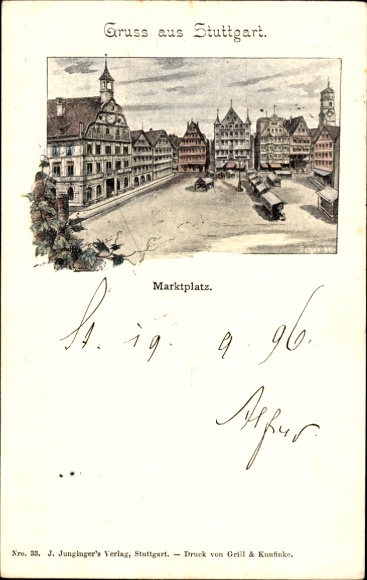 Gruss aus Stuttgart.
Marktplatz.
St. 19. 9. 96.
Alfred.
Nro. 33. J. Junginger's Verlag, Stuttgart. — Druck von Grill & Knufinke.